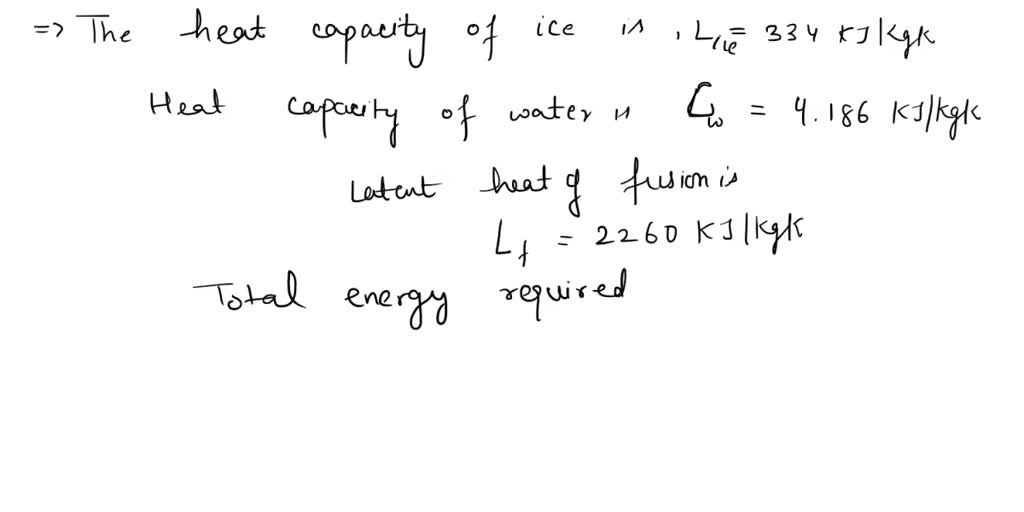 => The heat capacity of ice is, L/ice = 334 KJ/kgk
Heat capacity of water is Cw = 4.186 KJ/kgk
Latent heat of fusion is
Lf = 2260 KJ/kgk
Total energy required